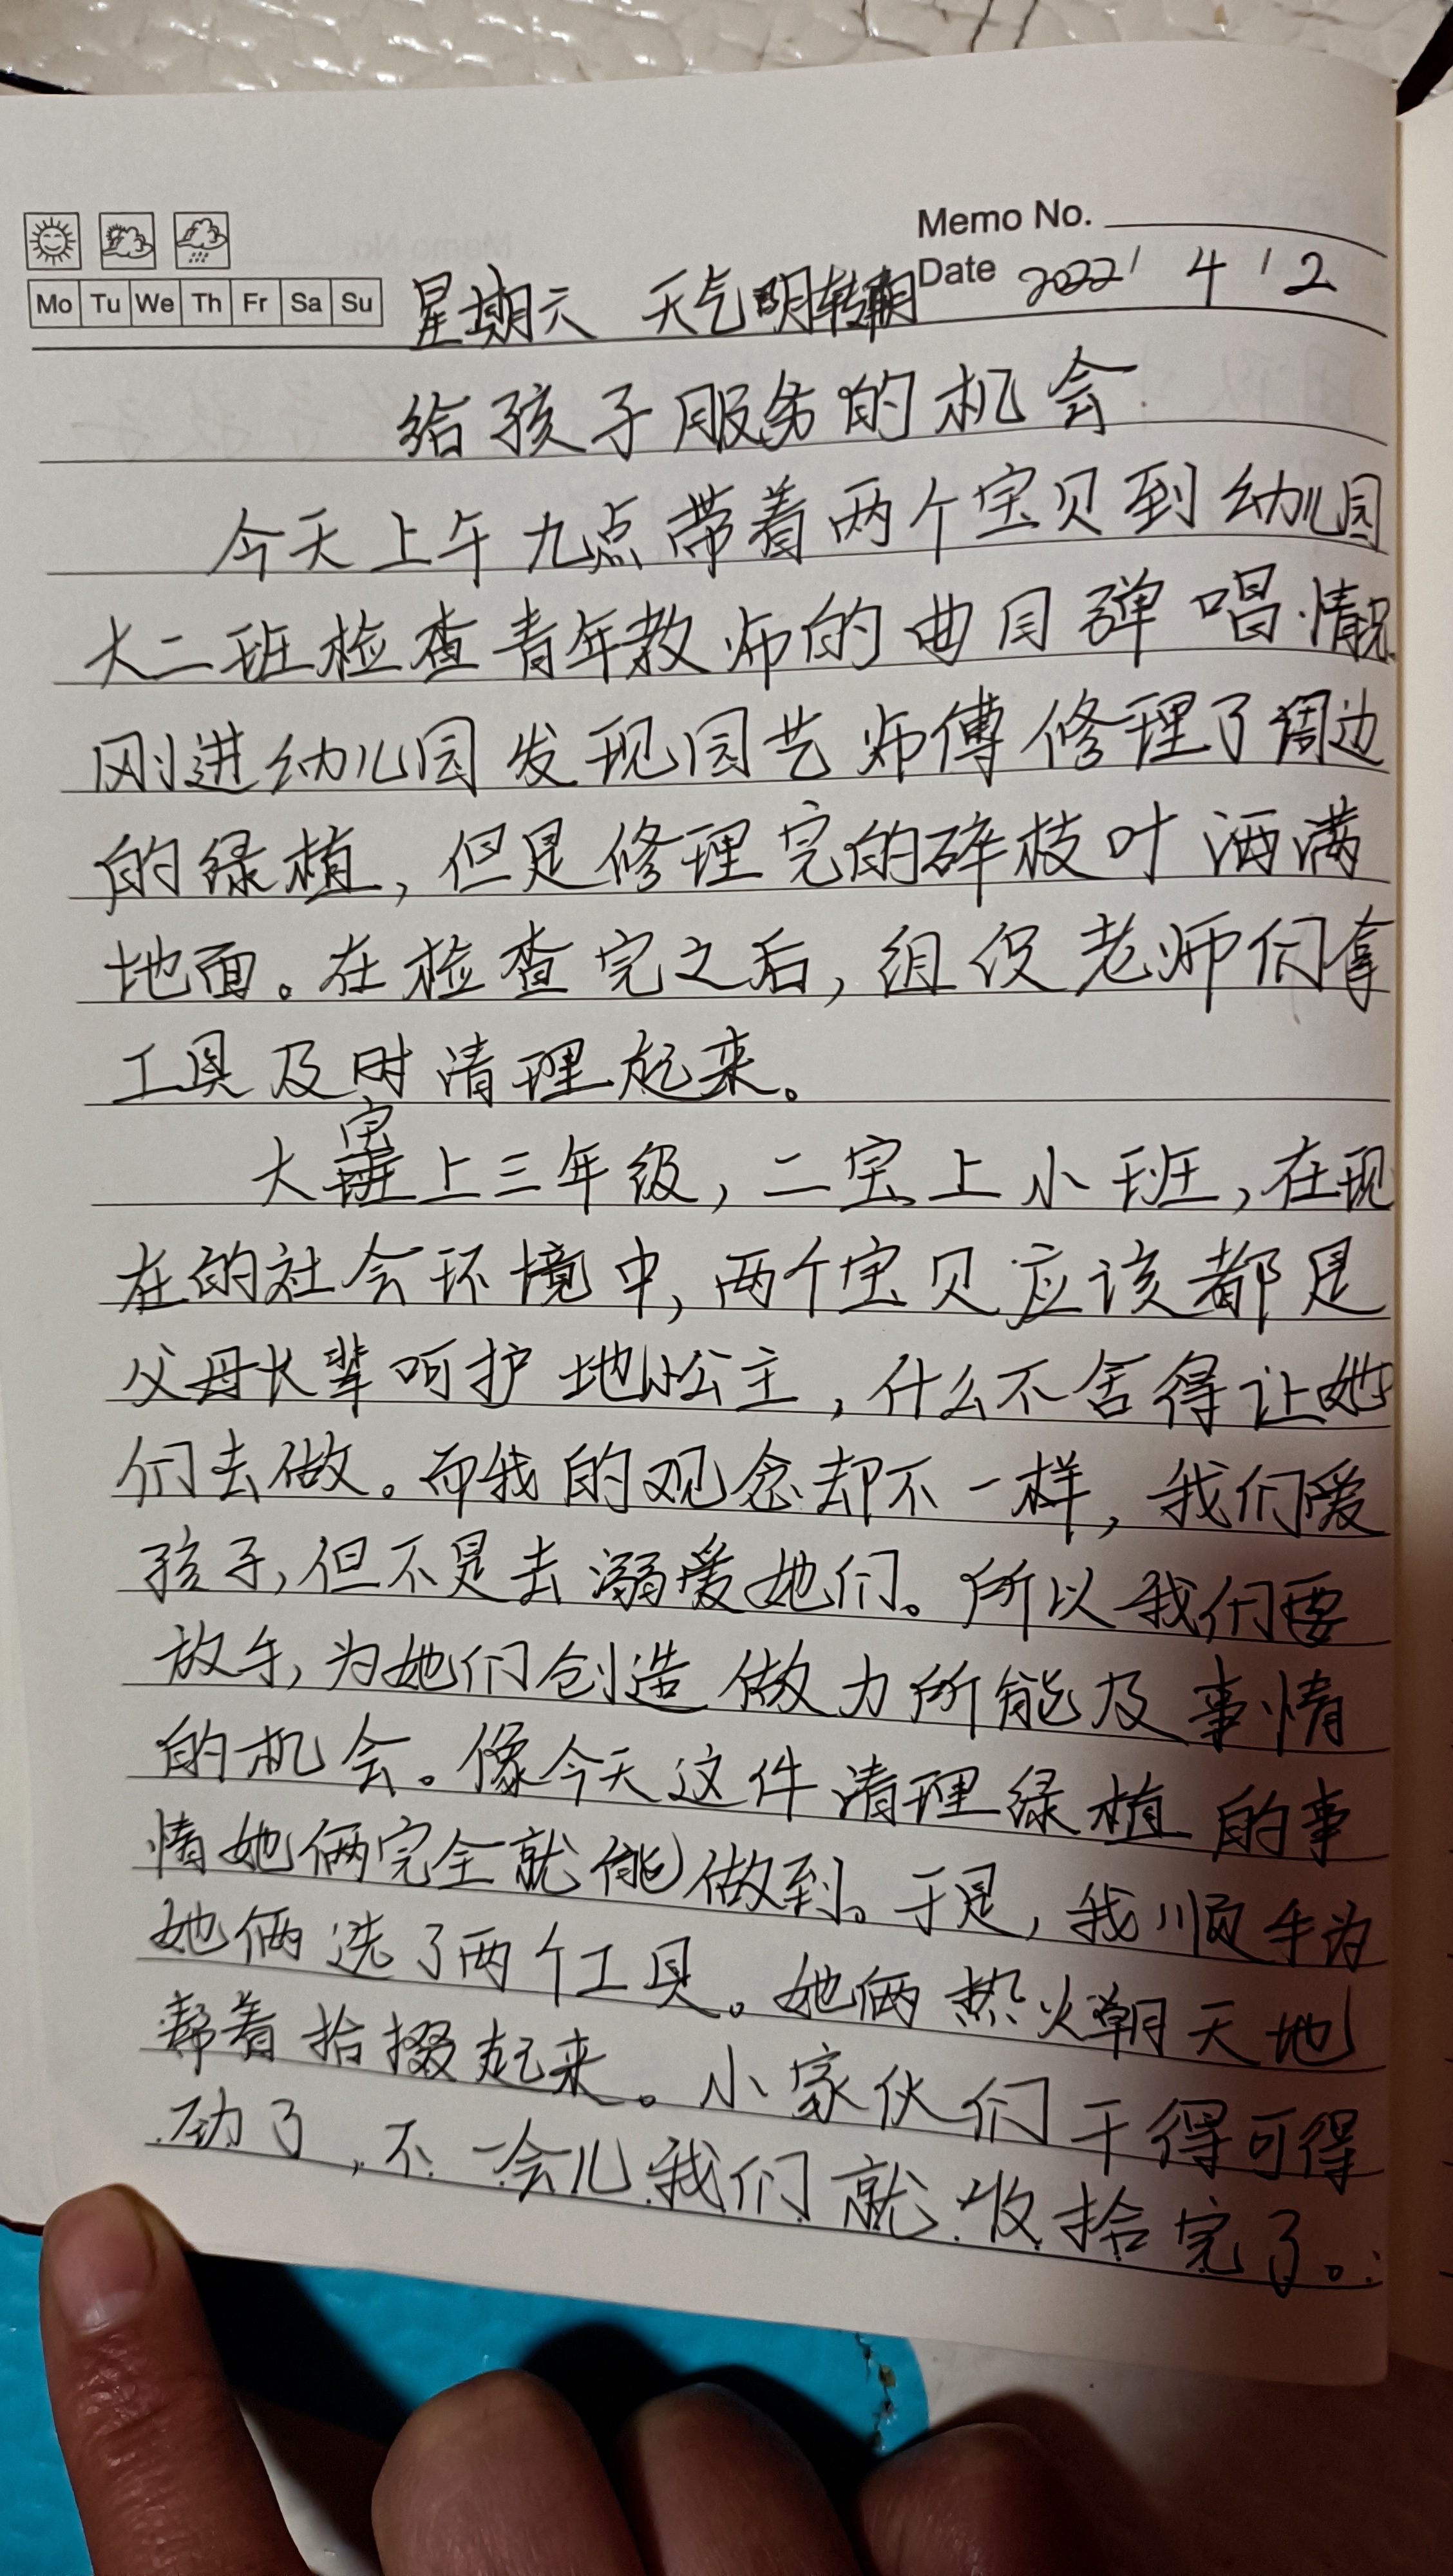 Memo No.
Mo Tu We Th Fr Sa Su
星期六 天气晴转 Date 2022 / 4 / 2
给孩子服务的机会
今天上午九点带着两个宝贝到幼儿园
大二班检查青年教师的曲目弹唱情况。
刚进幼儿园发现园艺师傅修理了周边
的绿植，但是修理完的碎枝叶洒满
地面。在检查完之后，组织老师们拿
工具及时清理起来。
大宝上三年级，二宝上小班，在现
在的社会环境中，两个宝贝应该都是
父母长辈呵护地小公主，什么不舍得让她
们去做。而我的观念却不一样，我们爱
孩子，但不是去溺爱她们。所以我们要
放手，为她们创造做力所能及事情
的机会。像今天这件清理绿植的事
情她俩完全就能做到。于是，我顺手为
她俩选了两个工具。她俩热火朝天地
帮着拾掇起来。小家伙们干得可得
劲了，不一会儿我们就收拾完了。